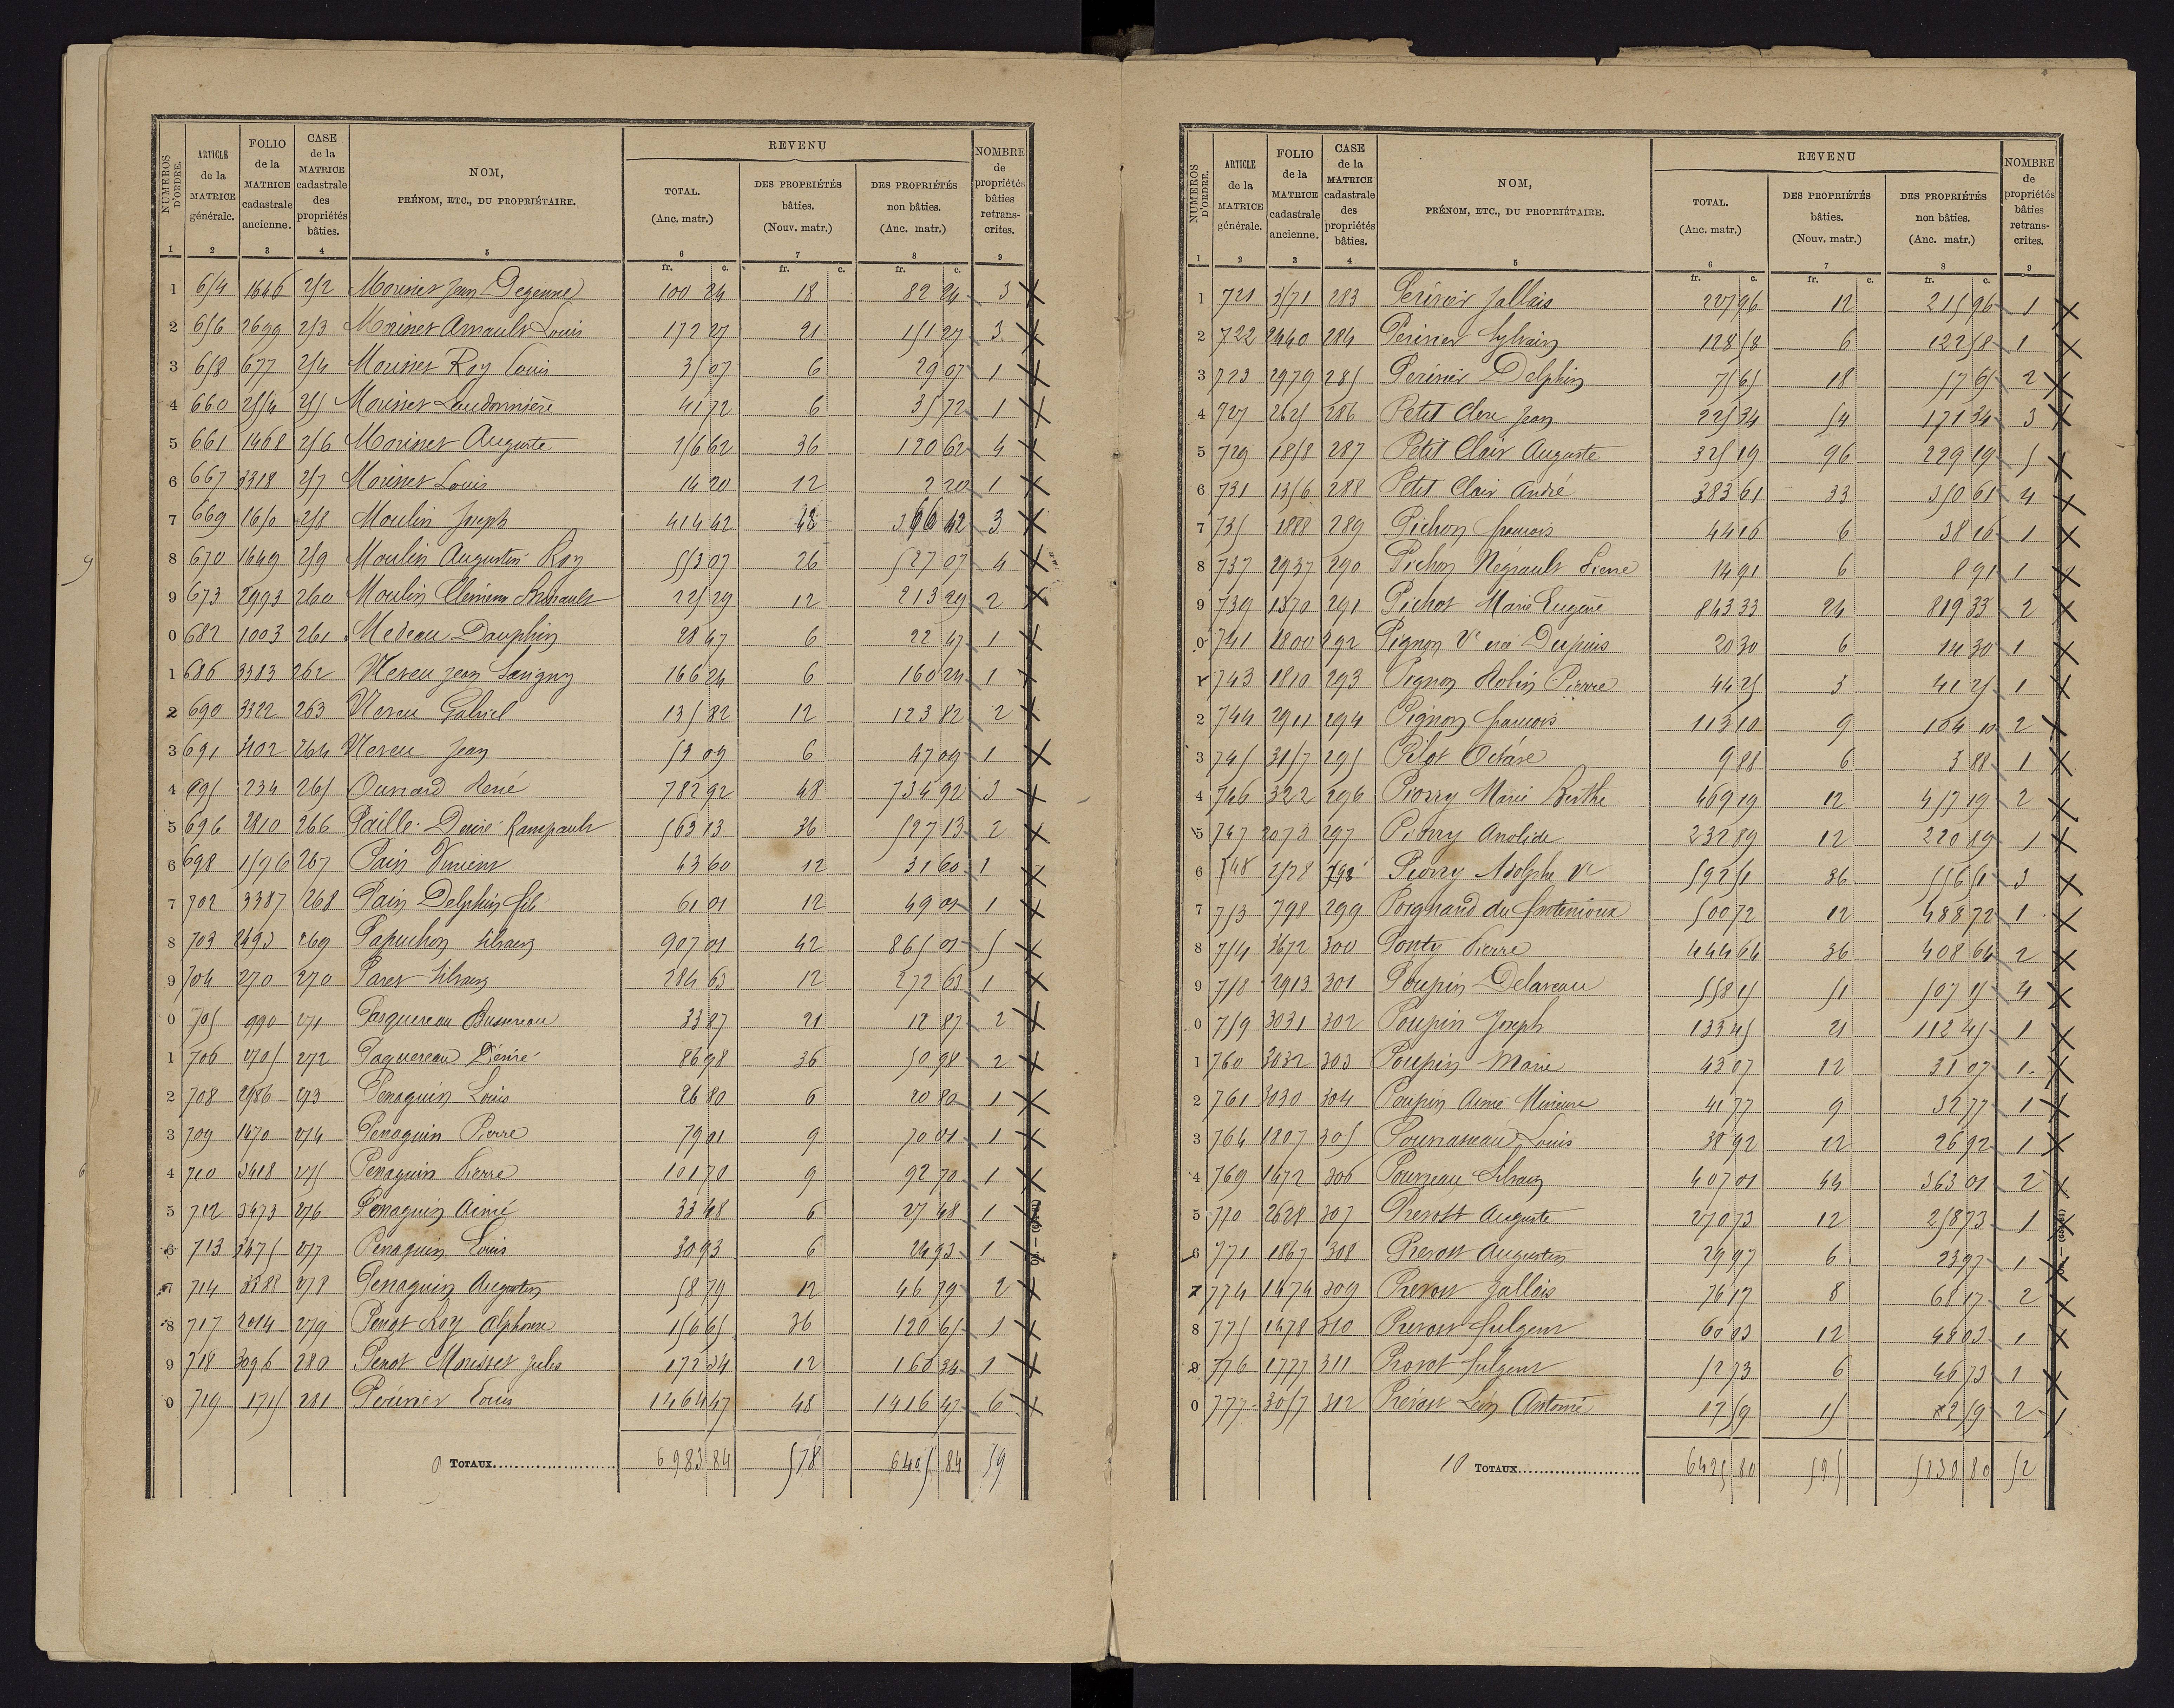 NUMÉROS D'ORDRE. ARTICLE de la MATRICE générale. FOLIO de la MATRICE cadastrale ancienne. CASE de la MATRICE cadastrale des propriétés bâties. NOM, PRÉNOM, ETC., DU PROPRIÉTAIRE. REVENU TOTAL. (Anc. matr.) DES PROPRIÉTÉS bâties. (Nouv. matr.) DES PROPRIÉTÉS non bâties. (Anc. matr.) NOMBRE de propriétés bâties retranscrites.
1 2 3 4 5 6 7 8 9
fr. c. fr. c. fr. c.
1 654 1646 252 Morinet Jean Degenne 100 24 18 82 24 3 X
2 656 2699 253 Morinet Arnault Louis 172 27 21 151 27 3 X
3 658 677 254 Morinet Roy Louis 35 07 6 29 07 1 X
4 660 2554 255 Morinet Laudonnière 41 72 6 35 72 1 X
5 661 1468 256 Morinet Auguste 156 62 36 120 62 4 X
6 667 3318 257 Morinet Louis 14 20 12 2 20 1 X
7 669 1650 258 Moulin Joseph 414 42 48 366 42 3 X
8 670 1649 259 Moulin Augustin Roy 553 07 26 527 07 4 X
9 673 2993 260 Moulin Clément Arnault 225 29 12 213 29 2 X
0 682 1003 261 Nedeau Dauphin 28 47 6 22 47 1 X
1 686 3383 262 Neveu Jean Savigny 166 24 6 160 24 1 X
2 690 3322 263 Neveu Gabriel 135 82 12 123 82 2 X
3 691 3102 264 Neveu Jean 53 09 6 47 09 1 X
4 695 234 265 Ouvrard René 782 92 48 734 92 3 X
5 696 2810 266 Paillé Désiré Rampault 563 13 36 527 13 2 X
6 698 1596 267 Pain Vincent 43 60 12 31 60 1 X
7 702 3387 268 Pain Delphin fils 61 01 12 49 01 1 X
8 703 2493 269 Papuchon Silvain 907 01 42 865 01 5 X
9 704 270 270 Paret Silvain 284 63 12 272 63 1 X
0 705 990 271 Pasquereau Bussereau 33 87 21 12 87 2 X
1 706 2705 272 Paquereau Désiré 86 98 36 50 98 2 X
2 708 2986 273 Penaguin Louis 26 80 6 20 80 1 X
3 709 1470 274 Penaguin Pierre 79 01 9 70 01 1 X
4 710 3418 275 Penaguin Pierre 101 70 9 92 70 1 X
5 712 3473 276 Penaguin Aimé 33 48 6 27 48 1 X
6 713 3475 277 Penaguin Louis 30 93 6 24 93 1 X
7 714 3388 278 Penaguin Augustin 58 79 12 46 79 2 X
8 717 2014 279 Penot Roy Alphonse 156 65 36 120 65 1 X
9 718 3096 280 Penot Morisset Jules 172 34 12 160 34 1 X
0 719 1715 281 Périvier Louis 1464 47 48 1416 47 6 X
TOTAUX 6983 84 578 6405 84 59
NUMÉROS D'ORDRE. ARTICLE de la MATRICE générale. FOLIO de la MATRICE cadastrale ancienne. CASE de la MATRICE cadastrale des propriétés bâties. NOM, PRÉNOM, ETC., DU PROPRIÉTAIRE. REVENU TOTAL. (Anc. matr.) DES PROPRIÉTÉS bâties. (Nouv. matr.) DES PROPRIÉTÉS non bâties. (Anc. matr.) NOMBRE de propriétés bâties retranscrites.
1 2 3 4 5 6 7 8 9
fr. c. fr. c. fr. c.
1 721 3571 283 Périvier Jallais 227 96 12 215 96 1 X
2 722 2440 284 Périvier Sylvain 128 58 6 122 58 1 X
3 723 2979 285 Périvier Delphin 75 65 18 57 65 2 X
4 727 2625 286 Petit Clerc Jean 225 34 54 171 34 3 X
5 729 1858 287 Petit Clair Auguste 325 19 96 229 19 5 X
6 731 1356 288 Petit Clair André 383 61 33 350 61 4 X
7 735 1888 289 Pichon francois 44 16 6 38 16 1 X
8 737 2937 290 Pichon Négrault Pierre 14 91 6 8 91 1 X
9 739 1370 291 Pichot Marie Eugène 843 33 24 819 33 2 X
0 741 1800 292 Pignon Ve née Dupuis 20 30 6 14 30 1 X
1 743 1810 293 Pignon Robin Pierre 44 25 3 41 25 1 X
2 744 2911 294 Pignon francois 113 10 9 104 10 2 X
3 745 3157 295 Pilot Octave 9 88 6 3 88 1 X
4 746 322 296 Piorry Marie Berthe 469 19 12 457 19 2 X
5 747 2073 297 Piorry Anolide 232 89 12 220 89 1 X
6 748 2528 298 Piorry Adolphe Ve 592 51 36 556 51 3 X
7 753 798 299 Poignand du fontenioux 500 72 12 488 72 1 X
8 754 3672 300 Ponty Pierre 444 64 36 408 64 2 X
9 758 2913 301 Poupin Delaveau 558 15 51 507 15 4 X
0 759 3031 302 Poupin Joseph 133 45 21 112 45 1 X
1 760 3032 303 Poupin Marie 43 07 12 31 07 1 X
2 761 3030 304 Poupin Aimé 41 77 9 32 77 1 X
3 764 1807 305 Pournaseau Louis 38 92 12 26 92 1 X
4 769 1472 306 Pousseau Silvain 407 01 44 363 01 2 X
5 770 2628 307 Prevost Auguste 270 73 12 258 73 1 X
6 771 1867 308 Prevost Augustin 29 97 6 23 97 1 X
7 774 1474 309 Prevost Jallais 76 17 8 68 17 2 X
8 775 1478 310 Prevost fulgent 60 03 12 48 03 1 X
9 776 1777 311 Provot fulgent 52 73 6 46 73 1 X
0 777 3057 312 Prévost Léon Antoine 17 59 15 2 59 2 X
10 TOTAUX 6425 80 595 5830 80 52